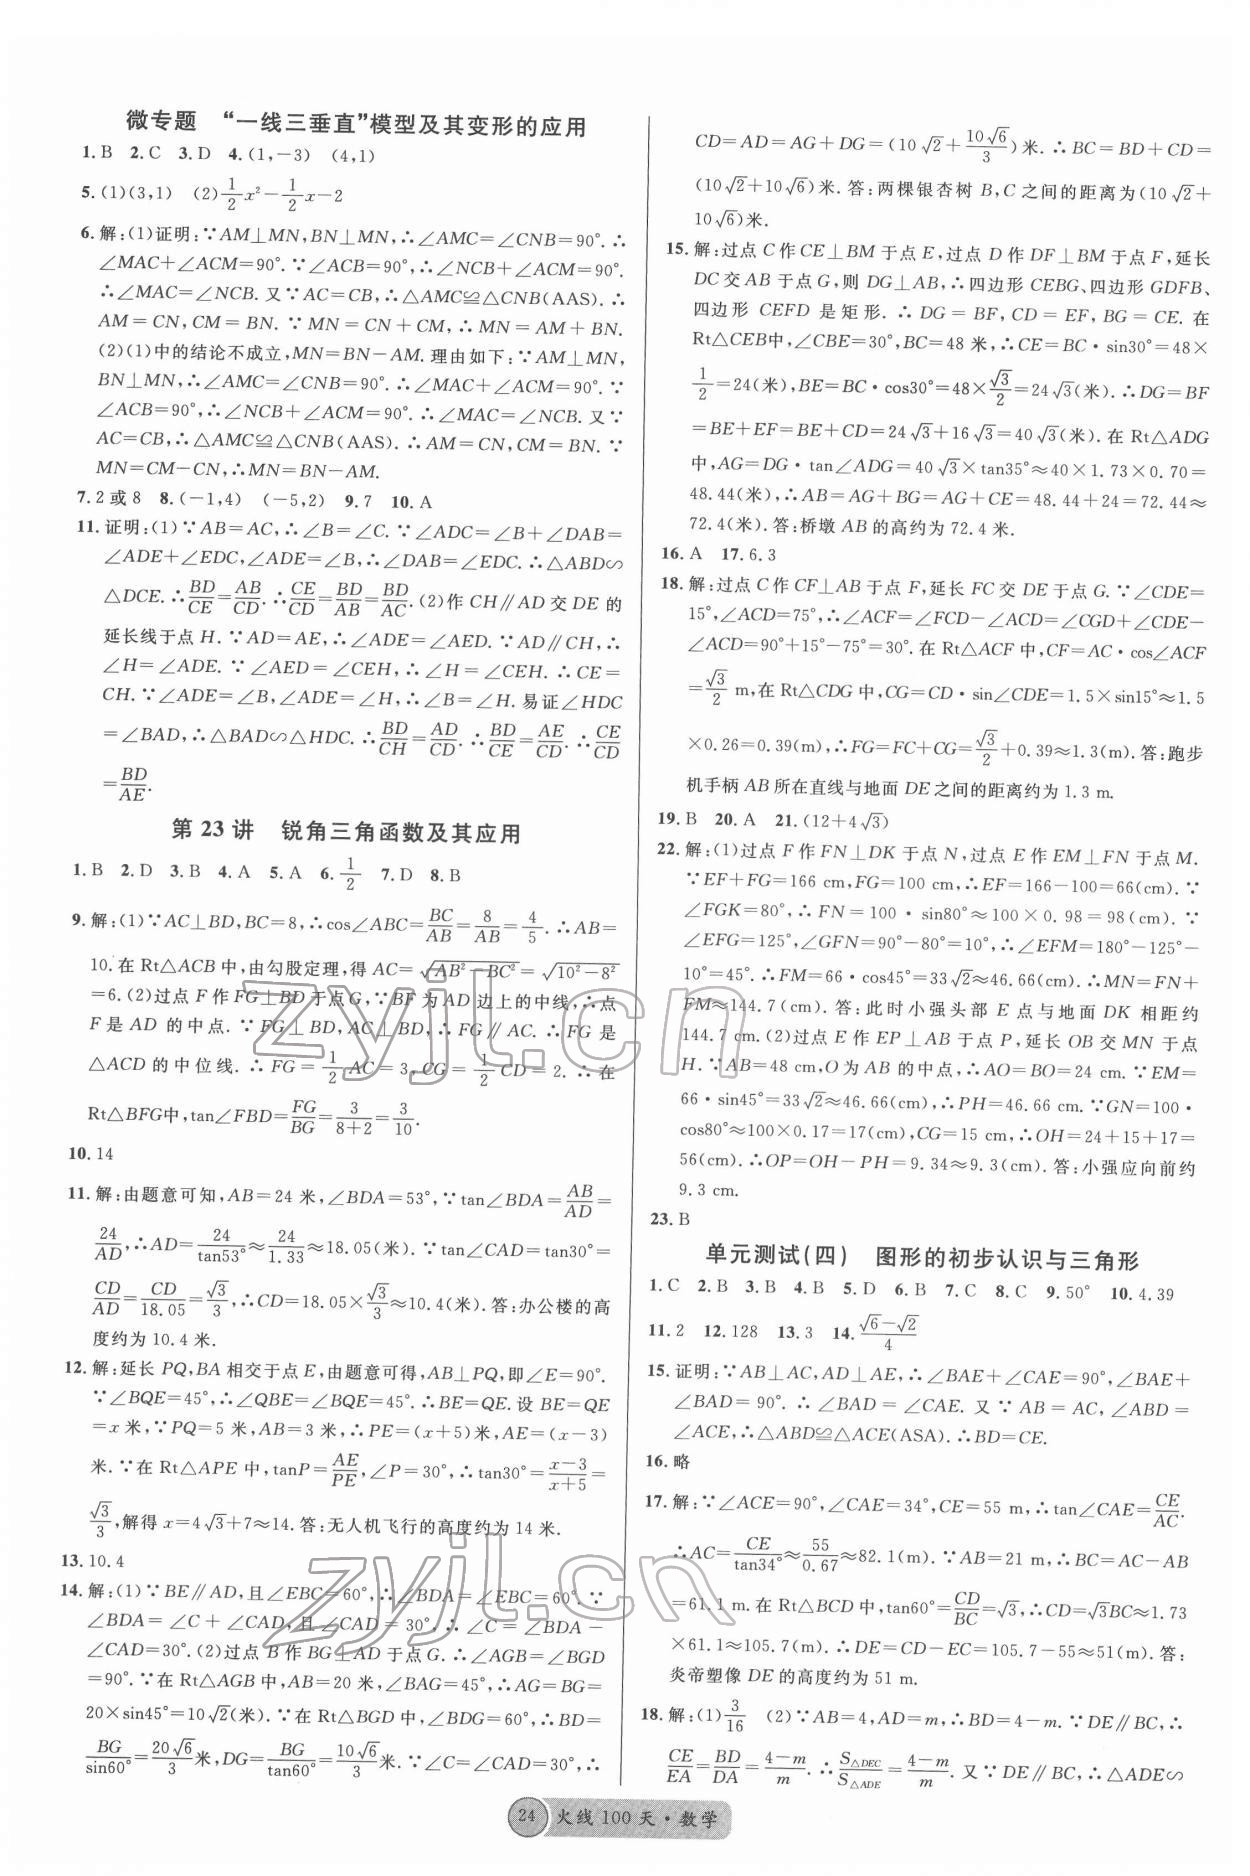 微专题 “一线三垂直”模型及其变形的应用
1.B 2.C 3.D 4.(1,-3) (4,1)
5.(1)(3,1) (2)1/2x²-1/2x-2
6.解:(1)证明:∵AM⊥MN,BN⊥MN,∴∠AMC=∠CNB=90°.∴
∠MAC+∠ACM=90°.∵∠ACB=90°,∴∠NCB+∠ACM=90°.
∴∠MAC=∠NCB.又∵AC=CB,∴△AMC≌△CNB(AAS).∴
AM=CN,CM=BN.∵MN=CN+CM,∴MN=AM+BN.
(2)(1)中的结论不成立,MN=BN-AM.理由如下:∵AM⊥MN,
BN⊥MN,∴∠AMC=∠CNB=90°.∴∠MAC+∠ACM=90°.∵
∠ACB=90°,∴∠NCB+∠ACM=90°.∴∠MAC=∠NCB.又∵
AC=CB,∴△AMC≌△CNB(AAS).∴AM=CN,CM=BN.∵
MN=CM-CN,∴MN=BN-AM.
7.2或8 8.(-1,4) (-5,2) 9.7 10.A
11.证明:(1)∵AB=AC,∴∠B=∠C.∵∠ADC=∠B+∠DAB=
∠ADE+∠EDC,∠ADE=∠B,∴∠DAB=∠EDC.∴△ABD∽
△DCE.∴BD/CE=AB/CD.∴CE/CD=BD/AB=BD/AC.(2)作CH∥AD交DE的
延长线于点H.∵AD=AE,∴∠ADE=∠AED.∵AD∥CH,∴
∠H=∠ADE.∵∠AED=∠CEH,∴∠H=∠CEH.∴CE=
CH.∵∠ADE=∠B,∠ADE=∠H,∴∠B=∠H.易证∠HDC
=∠BAD,∴△BAD∽△HDC.∴BD/CH=AD/CD.∴BD/CE=AE/CD.∴CE/CD
=BD/AE.
第23讲 锐角三角函数及其应用
1.B 2.D 3.B 4.A 5.A 6.1/2 7.D 8.B
9.解:(1)∵AC⊥BD,BC=8,∴cos∠ABC=BC/AB=8/AB=4/5.∴AB=
10.在Rt△ACB中,由勾股定理,得AC=√(AB²-BC²)=√(10²-8²)
=6.(2)过点F作FG⊥BD于点G,∵BF为AD边上的中线,∴点
F是AD的中点.∵FG⊥BD,AC⊥BD,∴FG∥AC.∴FG是
△ACD的中位线.∴FG=1/2AC=3,CG=1/2CD=2.∴在
Rt△BFG中,tan∠FBD=FG/BG=3/(8+2)=3/10.
10.14
11.解:由题意可知,AB=24米,∠BDA=53°,∵tan∠BDA=AB/AD=
24/AD,∴AD=24/tan53°≈24/1.33≈18.05(米).∵tan∠CAD=tan30°=
CD/AD=CD/18.05=√3/3,∴CD=18.05×√3/3≈10.4(米).答:办公楼的高
度约为10.4米.
12.解:延长PQ,BA相交于点E,由题意可得,AB⊥PQ,即∠E=90°.
∵∠BQE=45°,∴∠QBE=∠BQE=45°.∴BE=QE.设BE=QE
=x米,∵PQ=5米,AB=3米,∴PE=(x+5)米,AE=(x-3)
米.∵在Rt△APE中,tanP=AE/PE,∠P=30°,∴tan30°=(x-3)/(x+5)=
√3/3,解得x=4√3+7≈14.答:无人机飞行的高度约为14米.
13.10.4
14.解:(1)∵BE∥AD,且∠EBC=60°,∴∠BDA=∠EBC=60°.∵
∠BDA=∠C+∠CAD,且∠CAD=30°.∴∠C=∠BDA-
∠CAD=30°.(2)过点B作BG⊥AD于点G.∴∠AGB=∠BGD
=90°.∵在Rt△AGB中,AB=20米,∠BAG=45°,∴AG=BG=
20×sin45°=10√2(米).∵在Rt△BGD中,∠BDG=60°,∴BD=
BG/sin60°=20√6/3米,DG=BG/tan60°=10√6/3米.∵∠C=∠CAD=30°,∴
CD=AD=AG+DG=(10√2+10√6/3)米.∴BC=BD+CD=
(10√2+10√6)米.答:两棵银杏树B,C之间的距离为(10√2+
10√6)米.
15.解:过点C作CE⊥BM于点E,过点D作DF⊥BM于点F,延长
DC交AB于点G,则DG⊥AB,∴四边形CEBG、四边形GDFB、
四边形CEFD是矩形.∴DG=BF,CD=EF,BG=CE.在
Rt△CEB中,∠CBE=30°,BC=48米,∴CE=BC·sin30°=48×
1/2=24(米),BE=BC·cos30°=48×√3/2=24√3(米).∴DG=BF
=BE+EF=BE+CD=24√3+16√3=40√3(米).在Rt△ADG
中,AG=DG·tan∠ADG=40√3×tan35°≈40×1.73×0.70=
48.44(米),∴AB=AG+BG=AG+CE=48.44+24=72.44≈
72.4(米).答:桥墩AB的高约为72.4米.
16.A 17.6.3
18.解:过点C作CF⊥AB于点F,延长FC交DE于点G.∵∠CDE=
15°,∠ACD=75°,∴∠ACF=∠FCD-∠ACD=∠CGD+∠CDE-
∠ACD=90°+15°-75°=30°.在Rt△ACF中,CF=AC·cos∠ACF
=√3/2 m,在Rt△CDG中,CG=CD·sin∠CDE=1.5×sin15°≈1.5
×0.26=0.39(m),∴FG=FC+CG=√3/2+0.39≈1.3(m).答:跑步
机手柄AB所在直线与地面DE之间的距离约为1.3 m.
19.B 20.A 21.(12+4√3)
22.解:(1)过点F作FN⊥DK于点N,过点E作EM⊥FN于点M.
∵EF+FG=166 cm,FG=100 cm,∴EF=166-100=66(cm).∵
∠FGK=80°,∴FN=100·sin80°≈100×0.98=98(cm).∵
∠EFG=125°,∠GFN=90°-80°=10°,∴∠EFM=180°-125°-
10°=45°.∴FM=66·cos45°=33√2≈46.66(cm).∴MN=FN+
FM≈144.7(cm).答:此时小强头部E点与地面DK相距约
144.7 cm.(2)过点E作EP⊥AB于点P,延长OB交MN于点
H.∵AB=48 cm,O为AB的中点,∴AO=BO=24 cm.∵EM=
66·sin45°=33√2≈46.66(cm),∴PH=46.66 cm.∵GN=100·
cos80°≈100×0.17=17(cm),CG=15 cm,∴OH=24+15+17=
56(cm).∴OP=OH-PH=9.34≈9.3(cm).答:小强应向前约
9.3 cm.
23.B
单元测试(四) 图形的初步认识与三角形
1.C 2.B 3.B 4.B 5.D 6.B 7.C 8.C 9.50° 10.4.39
11.2 12.128 13.3 14.(√6-√2)/4
15.证明:∵AB⊥AC,AD⊥AE,∴∠BAE+∠CAE=90°,∠BAE+
∠BAD=90°.∴∠BAD=∠CAE.又∵AB=AC,∠ABD=
∠ACE,∴△ABD≌△ACE(ASA).∴BD=CE.
16.略
17.解:∵∠ACE=90°,∠CAE=34°,CE=55 m,∴tan∠CAE=CE/AC.
∴AC=CE/tan34°≈55/0.67≈82.1(m).∵AB=21 m,∴BC=AC-AB
=61.1 m.在Rt△BCD中,tan60°=CD/BC=√3,∴CD=√3BC≈1.73
×61.1≈105.7(m).∴DE=CD-EC=105.7-55≈51(m).答:
炎帝塑像DE的高度约为51 m.
18.解:(1)3/16 (2)∵AB=4,AD=m,∴BD=4-m.∵DE∥BC,∴
CE/EA=BD/DA=(4-m)/m.∴S△DEC/S△ADE=(4-m)/m.又∵DE∥BC,∴△ADE∽
24 火线100天·数学
zyjl.cn
zyjl.cn